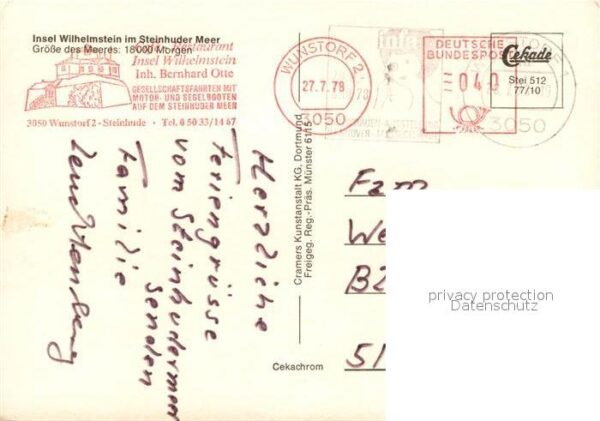 Insel Wilhelmstein im Steinhuder Meer
Größe des Meeres: 18000 Morgen
Restaurant
Insel Wilhelmstein
Inh. Bernhard Otte
GESELLSCHAFTSFAHRTEN MIT
MOTOR- UND SEGELBOOTEN
AUF DEM STEINHUDER MEER
3050 Wunstorf 2 - Steinhude • Tel. 0 50 33/14 67
WUNSTORF 2
27.7.78
3050
DEUTSCHE
BUNDESPOST
040
3050
Cekade
Stei 512
77/10
Herzliche
Feriengrüsse
vom Steinhudermeer
senden
Familie
Cramers Kunstanstalt KG. Dortmund
Freigeg. Reg.-Präs. Münster 6115
Cekachrom
Fam
We
B2
51
privacy protection
Datenschutz